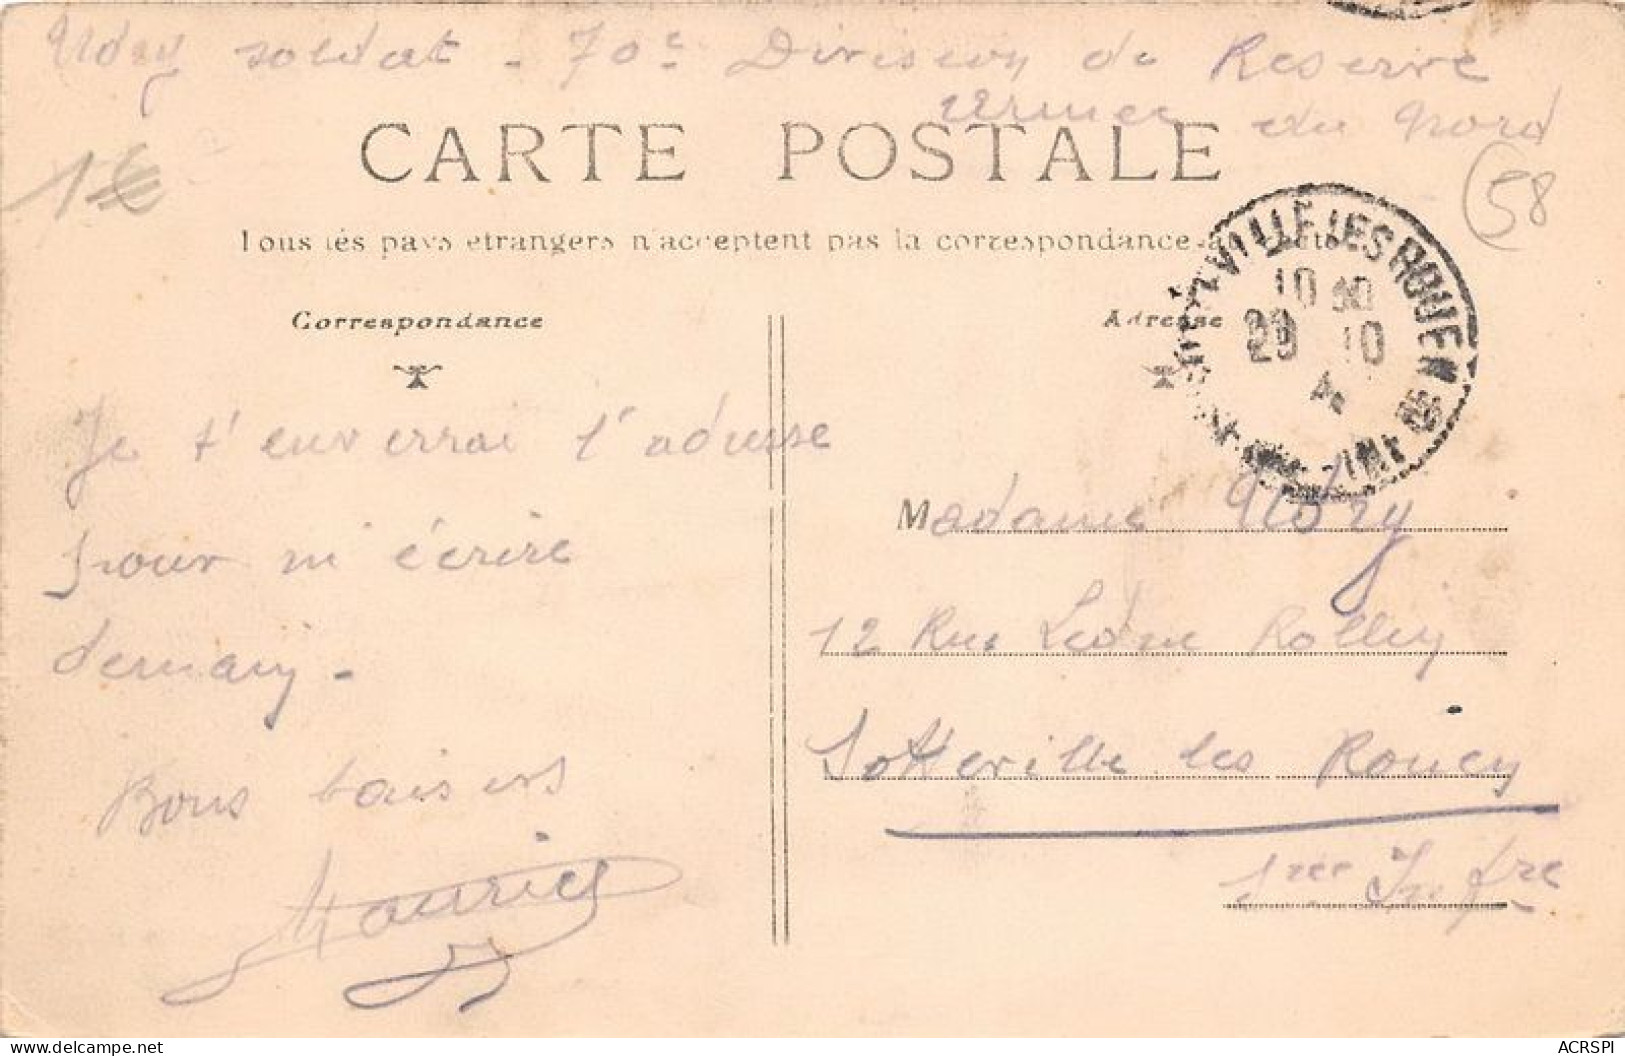 soldat - 70e Division de Reserve
Armee du Nord
CARTE POSTALE
1€
58
Tous les pays étrangers n'acceptent pas la correspondance
VILLE LES ROUEN
10 30
29 10
Correspondance
Adresse
Je t'enverrai l'adresse
pour m'écrire
demain -
Bons baisers
Maurice
Madame
12 Rue Léone Rolley
Sotteville les Rouen
Sne Infre
ACRSPI